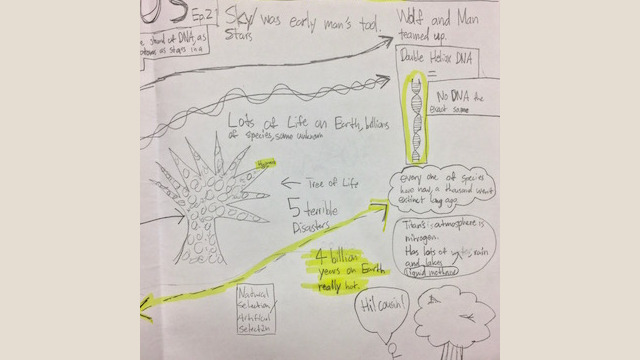 OS Ep.2
Sky/ was early man's tool.
Stars
Wolf and Man
teamed up.
strand of DNA, as
as stars in a
Double Heliox DNA
=
No DNA the
exact same
Lots of Life on Earth, billions
of species, some unknown
Human
← Tree of Life
5 terrible
Disasters
every one of species
now, a thousand went
extinct long ago.
Titan's atmosphere is
nitrogen.
Has lots of rain
and lakes
(liquid methane)
4 billion
years on Earth
really hot.
Natural
selection/
Artifical
selection
Hi! cousin!